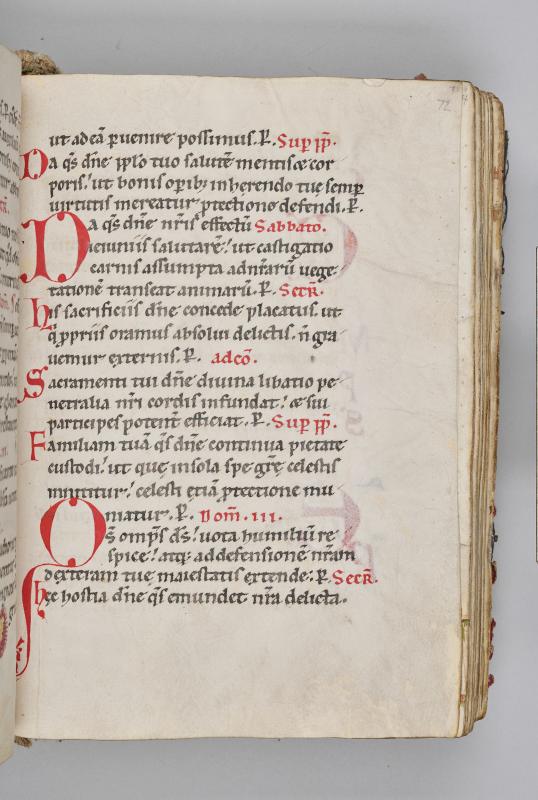 72
ut adeā ꝑuenire possimus. ꝑ. Suꝑ pp̄.
Da qs̄ dn̄e ppl̄o tuo salutē mentis & cor
poris. ut bonis oꝑib; inherendo tuę semꝑ
uirtutis mereatur ꝓtectione defendi. ꝑ.
Da qs̄ dn̄e nr̄is effectū Sabbato.
ieiuniis salutarē. ut castigatio
carnis assumpta adnr̄arū uege
tationē transeat animarū. ꝑ. Secr̄.
His sacrificiis dn̄e concede placatus. ut
q̇ ꝓpriis oramus absolui delictis. n̄ gra
uemur externis. ꝑ. adcō.
Sacramenti tui dn̄e diuina libatio pe
netralia nr̄i cordis infundat. & sui
participes potent̄ efficiat. ꝑ. Suꝑ pp̄.
Familiam tuā qs̄ dn̄e continua pietate
custodi. ut que insola spe gr̄ę celestis
innititur. celesti etiā ꝓtectione mu
niatur. ꝑ. Dom̄. III.
Qs̄ omp̄s ds̄. uota humiliū re
spice. atq; addefensionē nr̄am
dexteram tuę maiestatis extende. ꝑ. Secr̄.
Hęc hostia dn̄e qs̄ emundet nr̄a delicta.